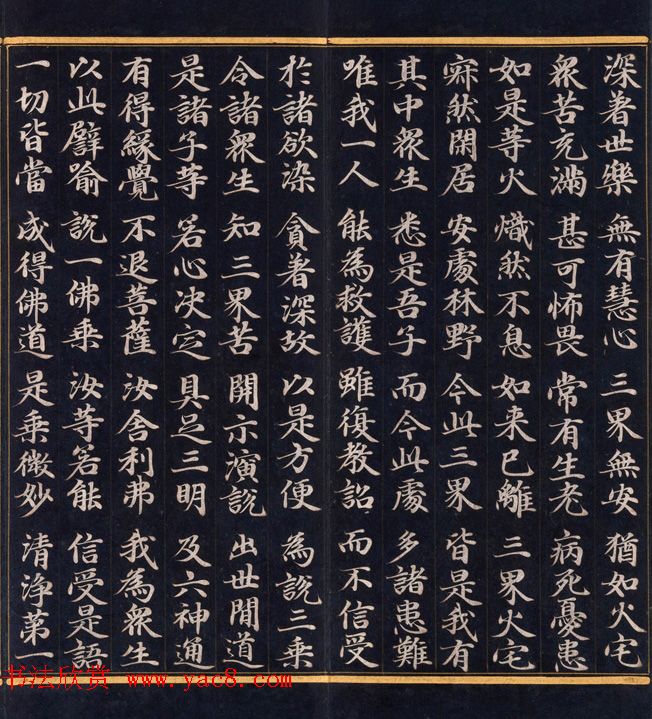 深著世樂 無有慧心 三界無安 猶如火宅
眾苦充滿 甚可怖畏 常有生老 病死憂患
如是等火 熾然不息 如来已離 三界火宅
寂然閑居 安處林野 今此三界 皆是我有
其中眾生 悉是吾子 而今此處 多諸患難
唯我一人 能為救護 雖復教詔 而不信受
於諸欲染 貪著深故 以是方便 為說三乗
令諸眾生 知三界苦 開示演說 出世間道
是諸子等 若心決定 具足三明 及六神通
有得緣覺 不退菩薩 汝舍利弗 我為眾生
以此譬喻 說一佛乗 汝等若能 信受是語
一切皆當 成得佛道 是乗微妙 清淨第一
书法欣赏 www.yac8.com